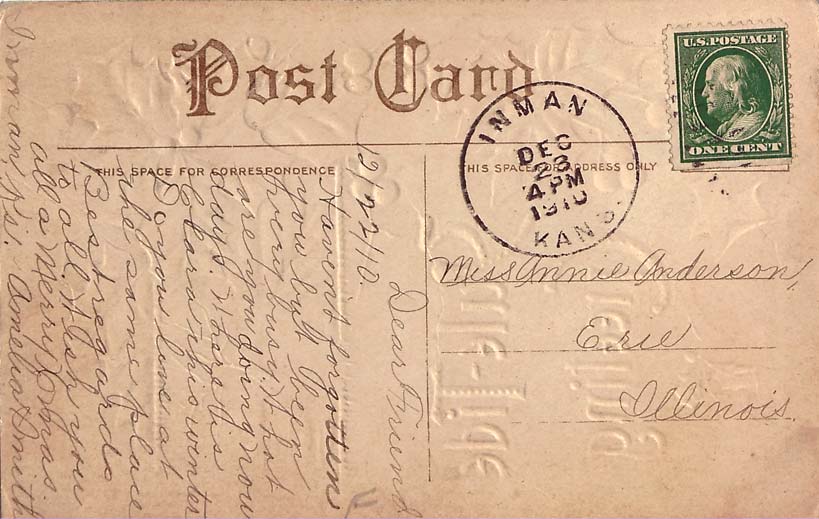 Post Card
THIS SPACE FOR CORRESPONDENCE
THIS SPACE FOR ADDRESS ONLY
U.S. POSTAGE
ONE CENT
INMAN
DEC
23
4 PM
1910
KANS.
Miss Annie Anderson,
Erie
Illinois.
12/22/10.
Dear Friend
Havent forgotten
you but been
very busy. What
are you doing now
days. Where is
Clara this winter
Do you live at
the same place
Best regards
to all. Wish you
all a Merry Xmas.
Inman Ks. Amelia Smith